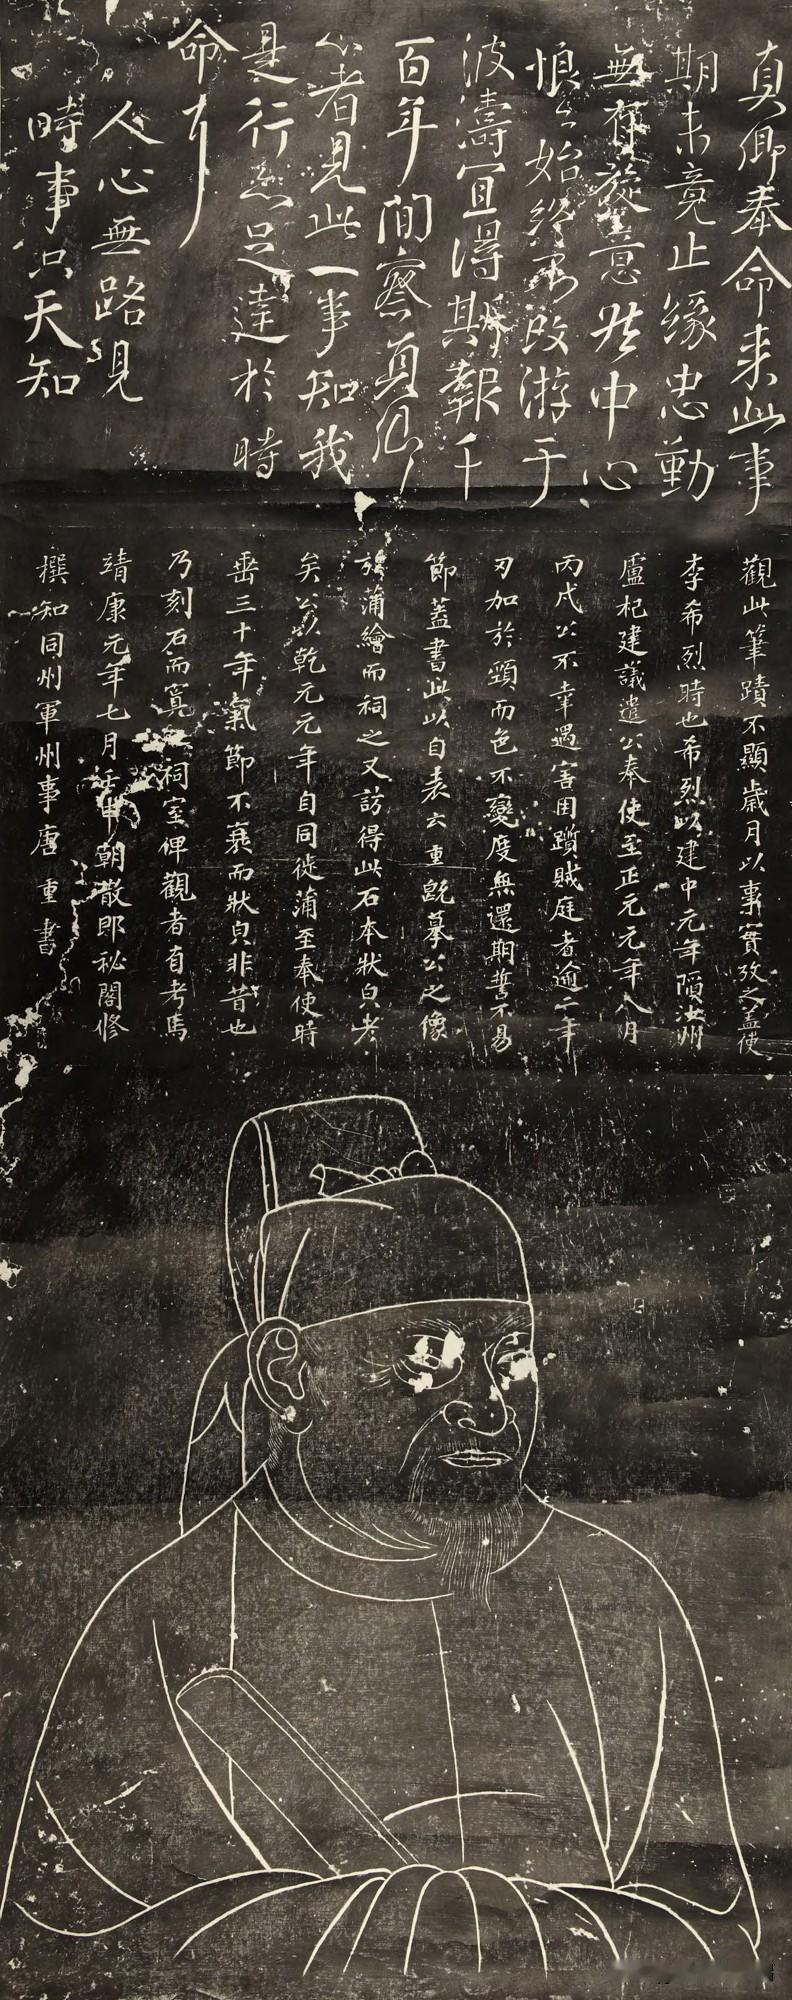 真卿奉命來此事
期未竟止緣忠勤
無有旋意然中心
恨恨始終不改游于
波濤宜得斯報千
百年間察真卿
心者見此一事知我
是行亦足達於時
命耳
人心無路見
時事只天知
觀此筆蹟不顯歲月以事實攷之蓋使
李希烈時也希烈以建中元年陷汝州
盧杞建議遣公奉使至正元元年八月
丙戌公不幸遇害困躓賊庭者逾二年
刃加於頸而色不變度無還期誓不易
節蓋書此以自表云重旣摹公之像
於蒲繪而祠之又訪得此石本狀貌老
矣公以乾元元年自同徙蒲至奉使時
垂三十年氣節不衰而狀貌非昔也
乃刻石而寘祠室俾觀者有考焉
靖康元年七月壬申朝散郎祕閣修
撰知同州軍州事唐重書